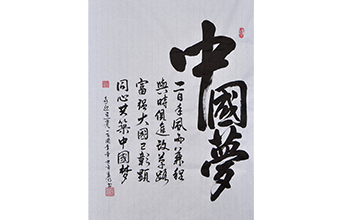 中國夢
一百年風雨兼程
與時俱進改革路
富强大國已彰顯
同心共築中國梦